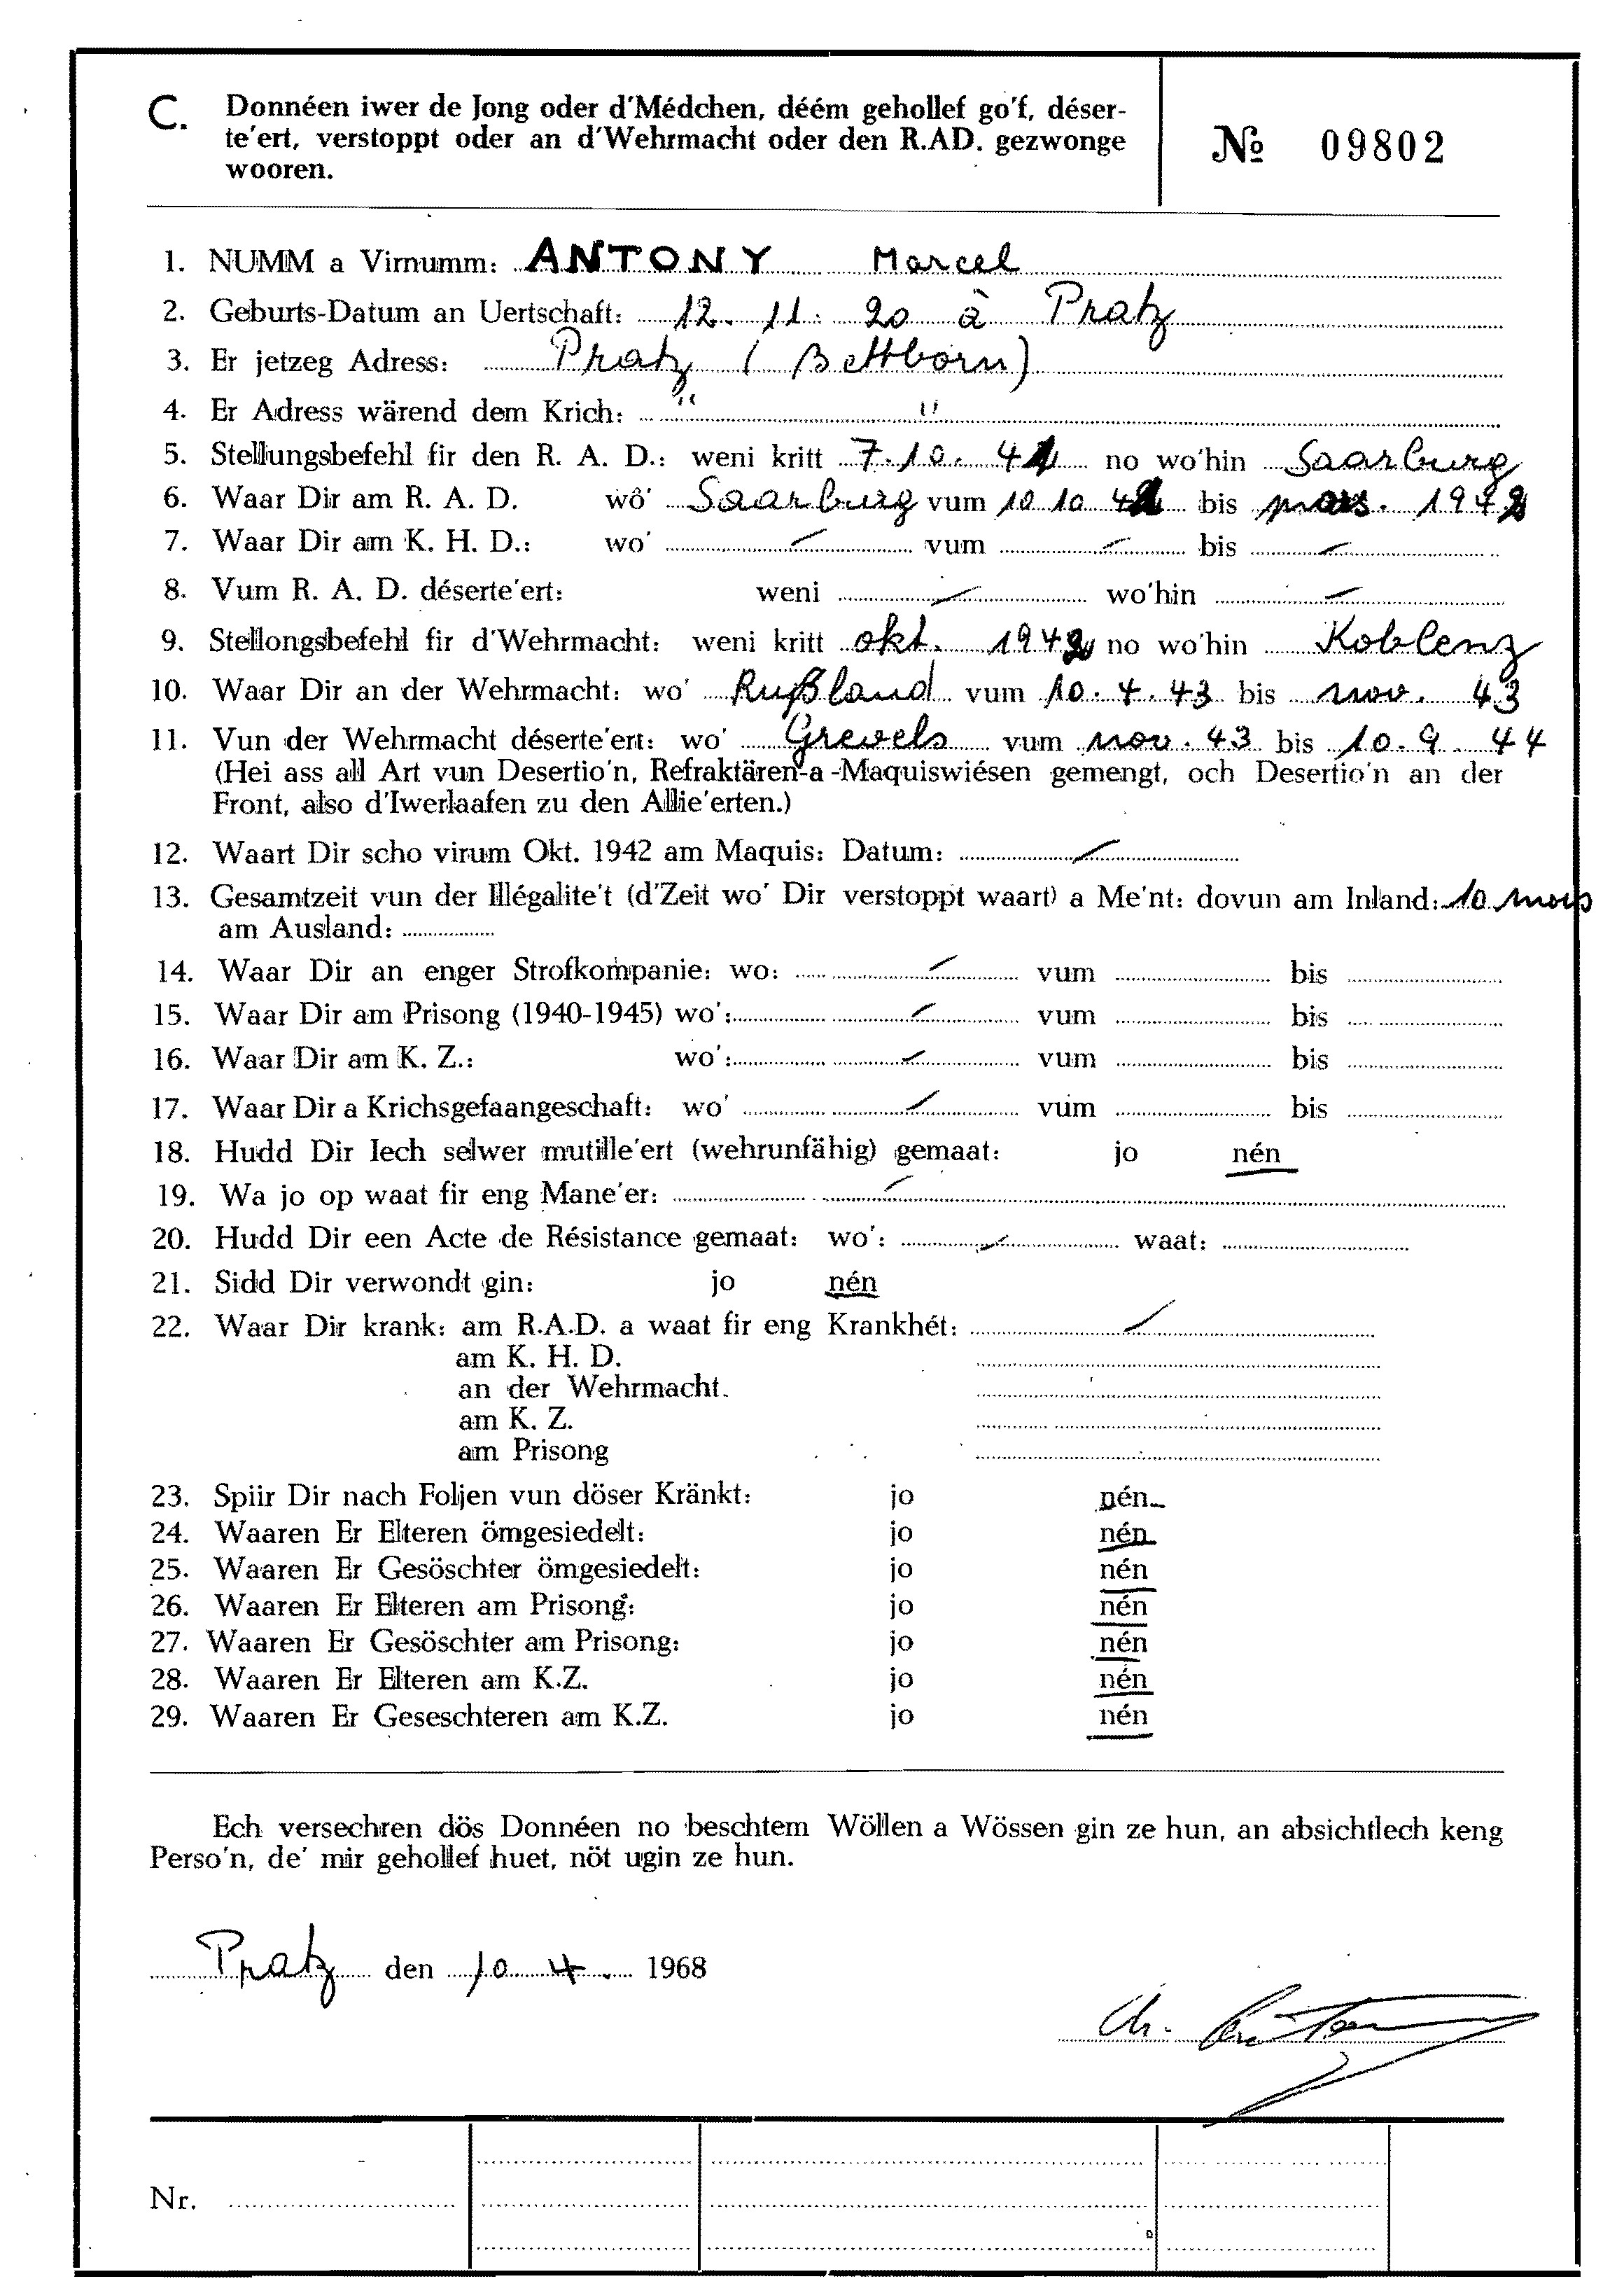 C. Donnéen iwer de Jong oder d'Médchen, déém gehollef go'f, déser-
te'ert, verstoppt oder an d'Wehrmacht oder den R.AD. gezwonge
wooren.
№ 09802
1. NUMM a Virnumm: ANTONY Marcel
2. Geburts-Datum an Uertschaft: 12. 11. 20 à Pratz
3. Er jetzeg Adress: Pratz (Bettborn)
4. Er Adress wärend dem Krich: " "
5. Stellungsbefehl fir den R. A. D.: weni kritt 7.10. no wo'hin Saarburg
6. Waar Dir am R. A. D. wô' Saarburg vum 10 10 bis mars.
7. Waar Dir am K. H. D.: wo' — vum — bis —
8. Vum R. A. D. déserte'ert: weni — wo'hin —
9. Stellongsbefehl fir d'Wehrmacht: weni kritt okt. 1942 no wo'hin Koblenz
10. Waar Dir an der Wehrmacht: wo' Rußland vum 10.4.43 bis nov. 43
11. Vun der Wehrmacht déserte'ert: wo' Grevels vum nov. 43 bis 10.9.44
(Hei ass all Art vun Desertio'n, Refraktären-a-Maquiswiésen gemengt, och Desertio'n an der
Front, also d'Iwerlaafen zu den Allie'erten.)
12. Waart Dir scho virum Okt. 1942 am Maquis: Datum: —
13. Gesamtzeit vun der Illégalite't (d'Zeit wo' Dir verstoppt waart) a Me'nt: dovun am Inland: 10 mois
am Ausland:
14. Waar Dir an enger Strofkompanie: wo: — vum bis
15. Waar Dir am Prisong (1940-1945) wo': — vum bis
16. Waar Dir am K. Z.: wo': — vum bis
17. Waar Dir a Krichsgefaangeschaft: wo' — vum bis
18. Hudd Dir Iech selwer mutille'ert (wehrunfähig) gemaat: jo nén
19. Wa jo op waat fir eng Mane'er: —
20. Hudd Dir een Acte de Résistance gemaat: wo': — waat:
21. Sidd Dir verwondt gin: jo nén
22. Waar Dir krank: am R.A.D. a waat fir eng Krankhét: —
am K. H. D.
an der Wehrmacht.
am K. Z.
am Prisong
23. Spiir Dir nach Foljen vun döser Kränkt: jo nén
24. Waaren Er Elteren ömgesiedelt: jo nén
25. Waaren Er Gesöschter ömgesiedelt: jo nén
26. Waaren Er Elteren am Prisong: jo nén
27. Waaren Er Gesöschter am Prisong: jo nén
28. Waaren Er Elteren am K.Z. jo nén
29. Waaren Er Geseschteren am K.Z. jo nén
Ech versechren dös Donnéen no beschtem Wöllen a Wössen gin ze hun, an absichtlech keng
Perso'n, de' mir gehollef huet, nöt ugin ze hun.
Pratz den 10. 4. 1968
Nr.